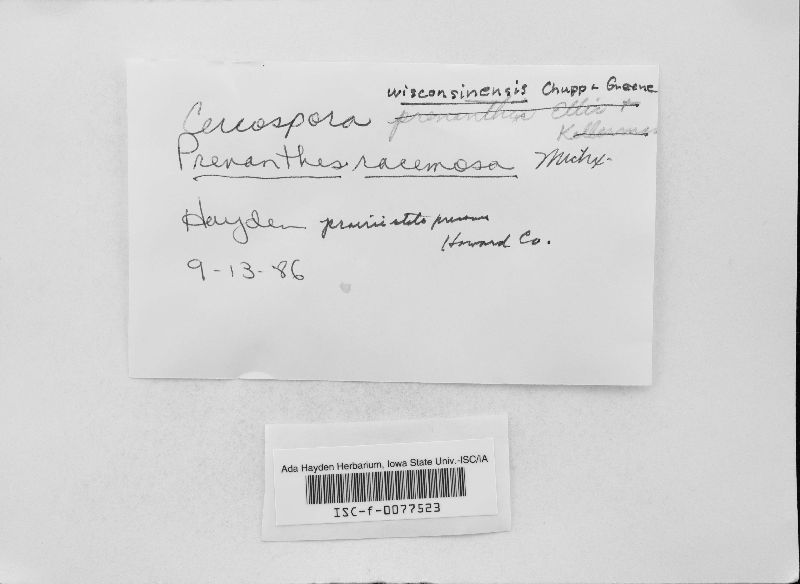 wisconsinensis Chupp & Greene
Cercospora prenanthis Ellis &
Kellerman
Prenanthes racemosa Michx.
Hayden prairie state preserve
Howard Co.
9-13-86
Ada Hayden Herbarium, Iowa State Univ.-ISC/IA
ISC-f-0077523